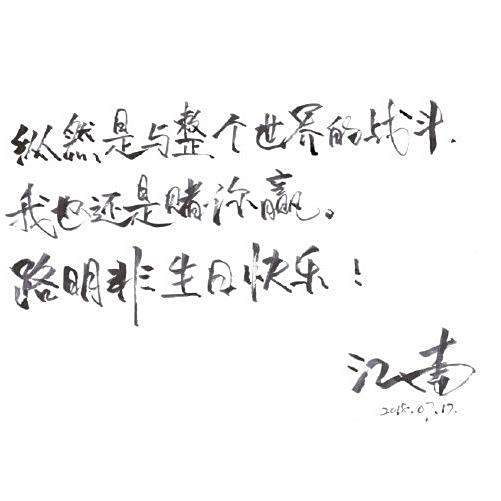 纵然是与整个世界的战斗.
我也还是赌你赢。
路明非生日快乐！
江南
2018.07.17.